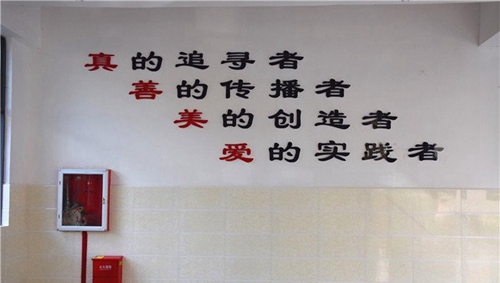 真的追寻者
善的传播者
美的创造者
爱的实践者